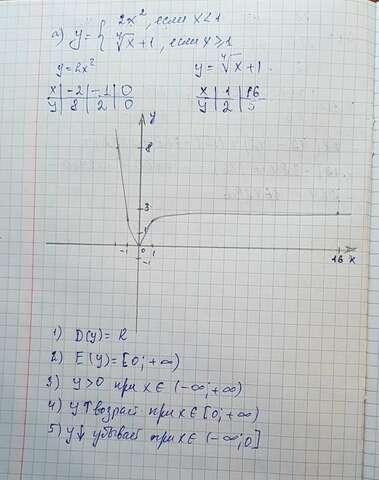 а) y = { 2x², если x<1
∜x + 1, если x≥1
y = 2x² y = ∜x + 1
x | -2 | -1 | 0 x | 1 | 16
y | 8 | 2 | 0 y | 2 | 3
y
8
3
1
-1 0 1 16 x
-1
1) D(y) = R
2) E(y) = [0; +∞)
3) y>0 при x ∈ (-∞; +∞)
4) y↑ возраст при x ∈ [0; +∞)
5) y↓ убывает при x ∈ (-∞; 0]